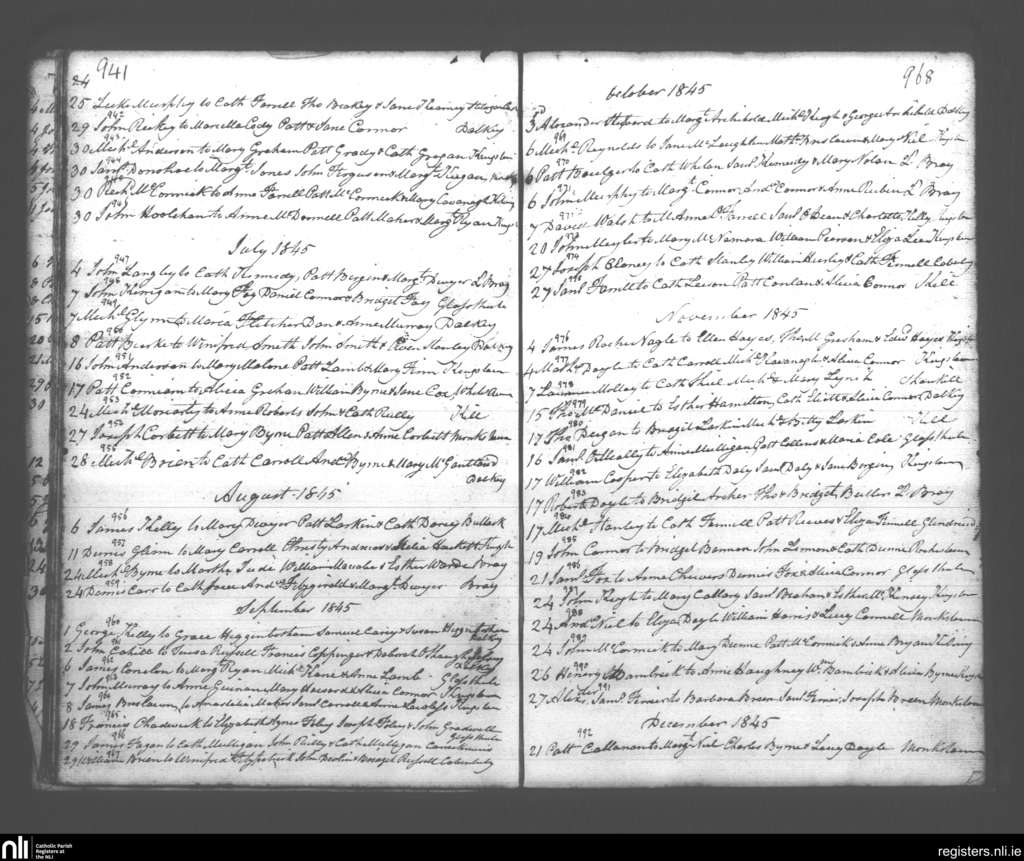 941
24
25 Luke Murphy to Cath Farrell Tho Breakey & Jane Kearney
942
29 John Rickey to Marcella Cody Patt & Jane Connor Dalkey
943
30 Mich Anderson to Mary Graham Patt Grady & Cath Grogan Kingstown
944
30 Saml Donohoe to Margt Jones John Ferguson & Margt Keegan
945
30 Rich McCormick to Anne Farrell Patt McCormick & Mary Cavanagh King
946
30 John Hoolehan to Anne McDonnell Patt Maher & Margt Ryan Kings
July 1845
947
4 John Langley to Cath Kennedy Patt Bergin & Margt Dwyer L Bray
948
7 John Kerrigan to Mary Fay Daniel Connor & Bridget Fay Glasthule
949
7 Michl Glynn to Maria Fletcher Dan & Anne Murray Dalkey
950
8 Patt Burke to Winifred Smith John Smith & Manley Dalkey
951
16 John Anderson to Mary Malone Patt Lamb & Mary Finn Kingstown
952
17 Patt Cormican to Alicia Graham William Byrne & Jane Cox
953
24 Michl Moriarty to Anne Roberts John & Cath Reilly Kill
954
27 Joseph Corbett to Mary Byrne Patt Allen & Anne Corbett Monkstown
955
28 Michl Brien to Cath Carroll Andw Byrne & Mary
Dalkey
August 1845
956
6 James Kelly to Mary Dwyer Patt Larkin & Cath Dorcey Bullock
957
11 Dennis Glinn to Mary Carroll Christy Andrews & Hackett
958
24 Michl Byrne to Martha Jude William & Esther Bray
959
24 Dennis Carr to Cath Andw Fitzgerald & Margt Dwyer Bray
September 1845
960
1 George Kelly to Grace Higginbotham Samuel Carey & Susan Higginbotham
Dalkey
961
2 John Cahill to Teresa Russell Francis Coppinger & Deborah O'Shaughnessy
Dalkey
962
6 James Conolan to Margt Ryan Michl Kane & Anne Lamb Glasthule
963
7 John Murray to Anne Guinan Mary Howard & Alicia Connor Kingstown
964
8 James to Anastatia Maher Saml Carroll & Anne Lawless Kingstown
965
18 Francis Chadwick to Elizabeth Agnes Foley Joseph Foley & John Gradwell
Glasthule
966
29 James Fagan to Cath Mulligan John Reilly & Cath Mulligan
967
29 William Brien to Winifred Fitzpatrick John & Bridget Russell
968
October 1845
3 Alexander to Margt Archibold Michl Keogh & George Archibold Dalkey
969
6 Michl Reynolds to Jane McLaughlin Matth & Mary Neil Kingstown
970
6 Patt Boulger to Cath Whelan Saml Kennedy & Mary Nolan L Bray
971
6 John Murphy to Margt Connor Andw Connor & Anne L Bray
972
7 David Walsh to MAnne Farrell Saml & Charlotte Kelly Kingstown
973
20 John to Mary McNamara William & Eliza Lee Kingstown
974
27 Joseph Blaney to Cath Stanley William & Cath Fennell
975
27 Saml Farrell to Cath Patt Conlan & Alicia Connor Kill
November 1845
976
4 James Roche Nagle to Ellen Hayes Tho M Gresham & Edwd Hayes
977
4 Matthw Doyle to Cath Carroll Michl Kavanagh & Alicia Connor Kingstown
978
7 Molloy to Cath Shiel Michl & Mary Lynch Shankill
979
15 Tho McDaniel to Esther Hamilton Cath & Alicia Connor Dalkey
980
17 Tho Deegan to Bridgit Larkin Michl & Betty Larkin Kill
981
16 Saml O'Meally to Anne Mulligan Patt Collins & Maria Cole Glasthule
982
17 William Cooper to Elizabeth Daly Saml Daly & Jane Kingstown
983
17 Robert Doyle to Bridgit Archer Tho & Bridget Butler L Bray
984
17 Michl Hanley to Cath Fennell Patt & Eliza Fennell
985
19 John Connor to Bridget Bannon John & Cath Dunne Monkstown
986
21 Saml Fox to Anne Chivers Dennis Fox & Alicia Connor Glasthule
987
24 John Keogh to Mary Callary Saml & Esther Kingstown
988
24 Andw Neil to Eliza Doyle William Harris & Lucy Connell Monkstown
989
24 John McCormick to Mary Dunne Patt McCormick & Anne Bryan
990
26 Henery Bambrick to Anne Haughney Wm Bambrick & Alicia Byrne
991
27 Alexr Saml to Barbara Breen Saml Joseph Breen Monkstown
December 1845
992
21 Patt Callanan to Margt Neil Charles Byrne & Lucy Doyle Monkstown
nli
Catholic Parish
Registers at
the NLI
registers.nli.ie